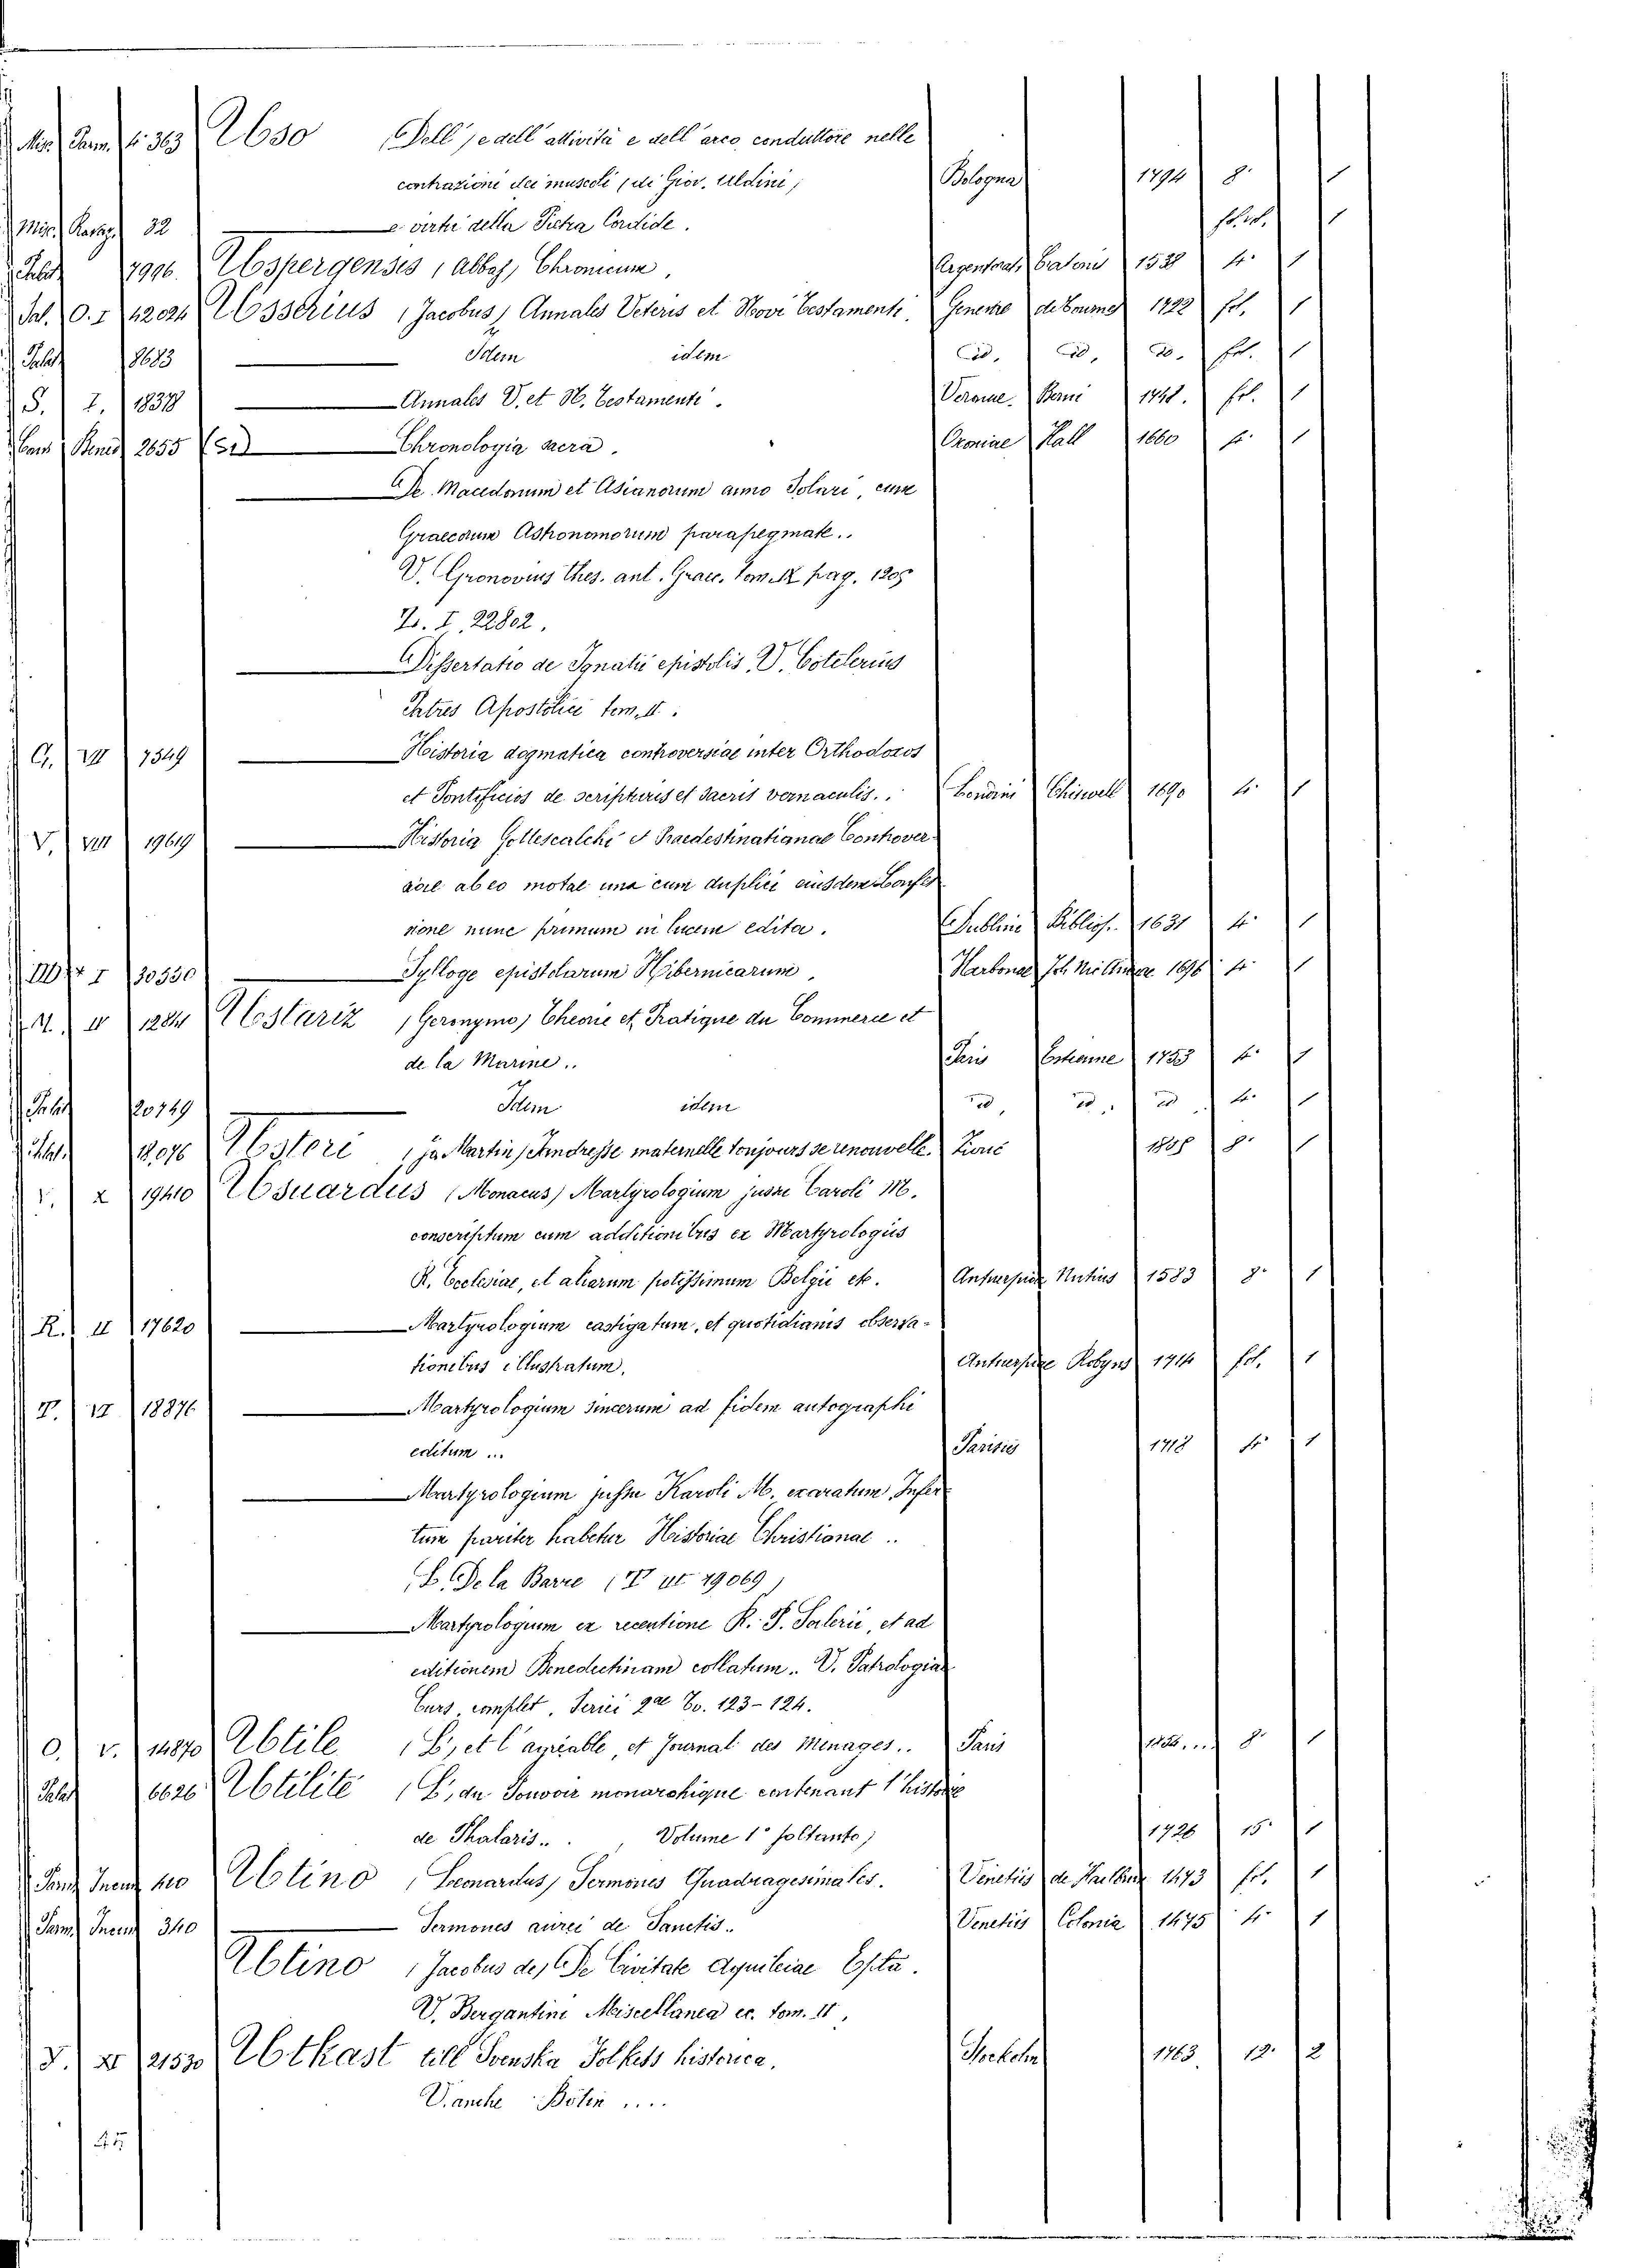 Uso (Dell', e dell' attività e dell' arco conduttore nelle
contrazioni dei muscoli (di Giov. Aldini) Bologna 1794 8° 1
32 e virtù della Pietra Cordide. 1
7996 Uspergensis (abbas) Chronicum. 4° 1
O. I 12024 Usserius (Jacobus) Annales Veteris et Novi Testamenti. Genevae de Tournes 1722 fol. 1
8683 Idem idem id. id. id. fol. 1
S. I. 1837 Annales V. et N. Testamenti. Veronae Berni 1741. fol. 1
2655 Chronologia sacra. Oxoniae Hall 1660 4° 1
De Macedonum et Asianorum anno Solari, cum
Graecorum Astronomorum parapegmate..
V. Gronovius Thes. ant. Graec. Tom. IX pag. 1205
I. 22802.
Dissertatio de Ignatii epistolis. V. Cotelerius
Patres Apostolici tom. II.
G. VII 7549 Historia dogmatica controversiae inter Orthodoxos
et Pontificios de scripturis et sacris vernaculis.. Londini Chiswell 1690 4° 1
V. VIII 19619 Historia Gottescalchi et Praedestinatianae Controver-
siae ab eo motae una cum duplici eiusdem Confes
sione nunc primum in lucem edita. Dublini Biblioph. 1631 4° 1
I 30530 Sylloge epistolarum Hibernicarum. Harbonae 1696 4° 1
IV 1284 Ustariz (Geronymo) Theorie et Pratique du Commerce et
de la Marine.. Paris Estienne 1753 4° 1
20749 Idem idem id. id. id. 4° 1
Ustori (ja Martin) Tendresse maternelle toujours se renouvelle. 8° 1
V. X 19410 Usuardus (Monacus) Martyrologium jussu Caroli M.
conscriptum cum additionibus ex Martyrologiis
R. Ecclesiae, et aliarum potissimum Belgii etc. Antuerpiae Nutius 1583 8° 1
R. II 17620 Martyrologium castigatum, et quotidianis observa-
tionibus illustratum. Antuerpiae Robyns 1714 fol. 1
T. VI 18876 Martyrologium sincerum ad fidem autographi
editum ... Parisiis 1718 4° 1
Martyrologium jussu Karoli M. exaratum. Infer
tum pariter habetur Historiae Christianae ..
L. De la Barre (T III 19069)
Martyrologium ex recentione R. P. Sollerii, et ad
editionem Benedictinam collatum.. V. Patrologiae
Curs. complet. Serici 2ae To. 123-124.
O. V. 14870 Utile (L', et l'agréable, et Journal des Menages.. Paris 8° 1
6626 Utilité (L', du Pouvoir monarchique contenant l'histoire
de Phalaris... Volume 1° soltanto) 1726 15° 1
Utino (Leonardus) Sermones Quadragesimales. Venetiis 1473 fol. 1
340 Sermones aurei de Sanctis.. Venetiis Colonia 1475 4° 1
Utino (Jacobus de) De Civitate Aquileiae Epsta.
V. Bergantini Miscellanea ec. tom. II.
XI 21530 Utkast till Svenska Folkets historica. 1763 12. 2
V. anche Bötin ....
45